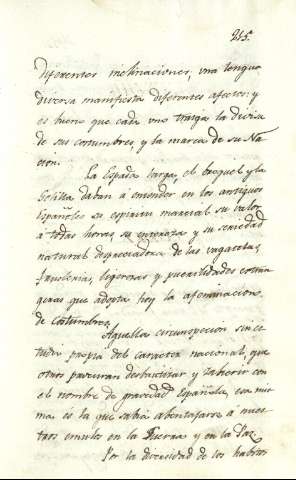 215.
Diferentes inclinaciones, una lengua
diversa manifiesta diferentes afectos: y
es bueno que cada uno traiga la divisa
de sus costumbres, y la marca de su Na
cion.
La Espada larga, el broquel, y la
Golilla daban á entender en los antiguos
Españoles su espiritu marcial su valor
a todas horas, su entereza y su seriedad
natural despreciadora de las vagatelas,
Insolencia, ligerezas y puerilidades estran
geras que adopta hoy la afeminacion
de Costumbres.
Aquella circunspeccion sin es
tudio propia del caracter nacional, que
otros procuran desbautizar y zaherir con
el nombre de gravedad Española, esa mis
ma es la que sabia abentajarse á nues
tros emulos en la Guerra y en la Paz.
Por la diversidad de los habitos